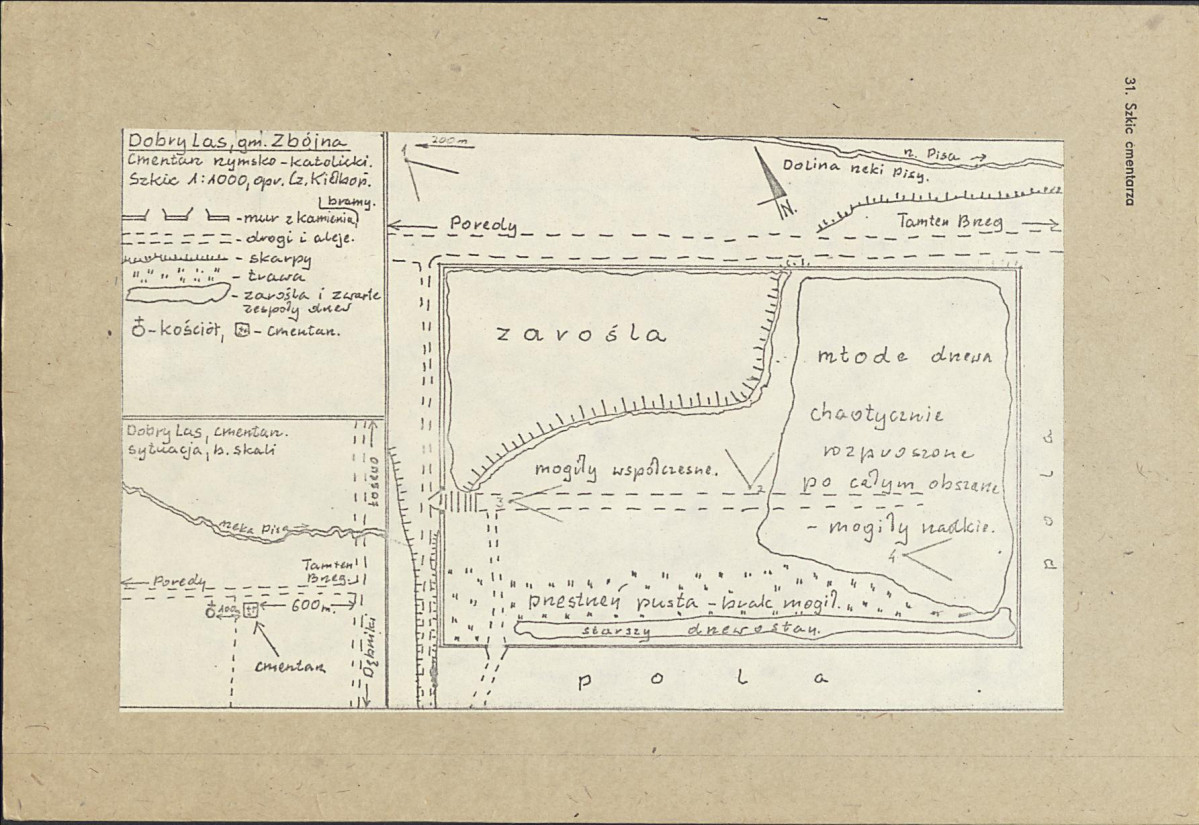 31. Szkic cmentarza
Dobry Las, gm. Zbójna
Cmentarz rzymsko-katolicki.
Szkic 1:1000, opr. Cz. Kiełboń.
bramy.
- mur z kamienia
- drogi i aleje.
- skarpy
- trawa
- zarośla i zwarte
zespoły drzew
- kościół, - cmentarz.
Dobry Las, cmentarz.
sytuacja, b. skali
Łosewo
rzeka Pisa
Poredy
Tamten
Brzeg
100
600 m.
cmentarz
Dębniki
1
200 m
Poredy
N.
rz. Pisa
Dolina rzeki Pisy.
Tamten Brzeg
zarośla
młode drzewa
chaotycznie
rozproszone
po całym obszarze
- mogiły rzadkie.
mogiły współczesne.
2
3
4
przestrzeń pusta - brak mogił.
starszy drzewostan.
pola
pola